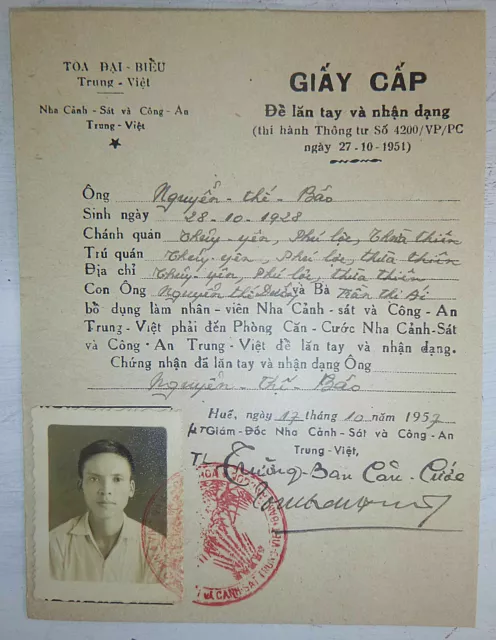 TOA ĐẠI - BIỂU
Trung - Việt
Nha Cảnh - Sát và Công - An
Trung - Việt
GIẤY CẤP
Đề lăn tay và nhận dạng
(thi hành Thông tư Số 4200/VP/PC
ngày 27-10-1951)
Ông Nguyễn - thế - Bảo
Sinh ngày 28-10-1928
Chánh quán Thủy-yên, Phú lộc, Thừa thiên
Trú quán Thủy-yên, Phú lộc, thừa thiên
Địa chỉ Thủy-yên, Phú lộc, thừa thiên
Con Ông Nguyễn thế và Bà Trần thị
bồ dụng làm nhân-viên Nha Cảnh-sát và Công-An
Trung-Việt phải đến Phòng Căn-Cước Nha Cảnh-Sát
và Công-An Trung-Việt đề lăn tay và nhận dạng.
Chứng nhận đã lăn tay và nhận dạng Ông
Nguyễn - thế - Bảo
Huế, ngày 17 tháng 10 năm 1957
Giám-Đốc Nha Cảnh-Sát và Công-An
Trung-Việt,
TL Trưởng-Ban Căn-Cước
CẢNH-SÁT TRUNG-VIỆT